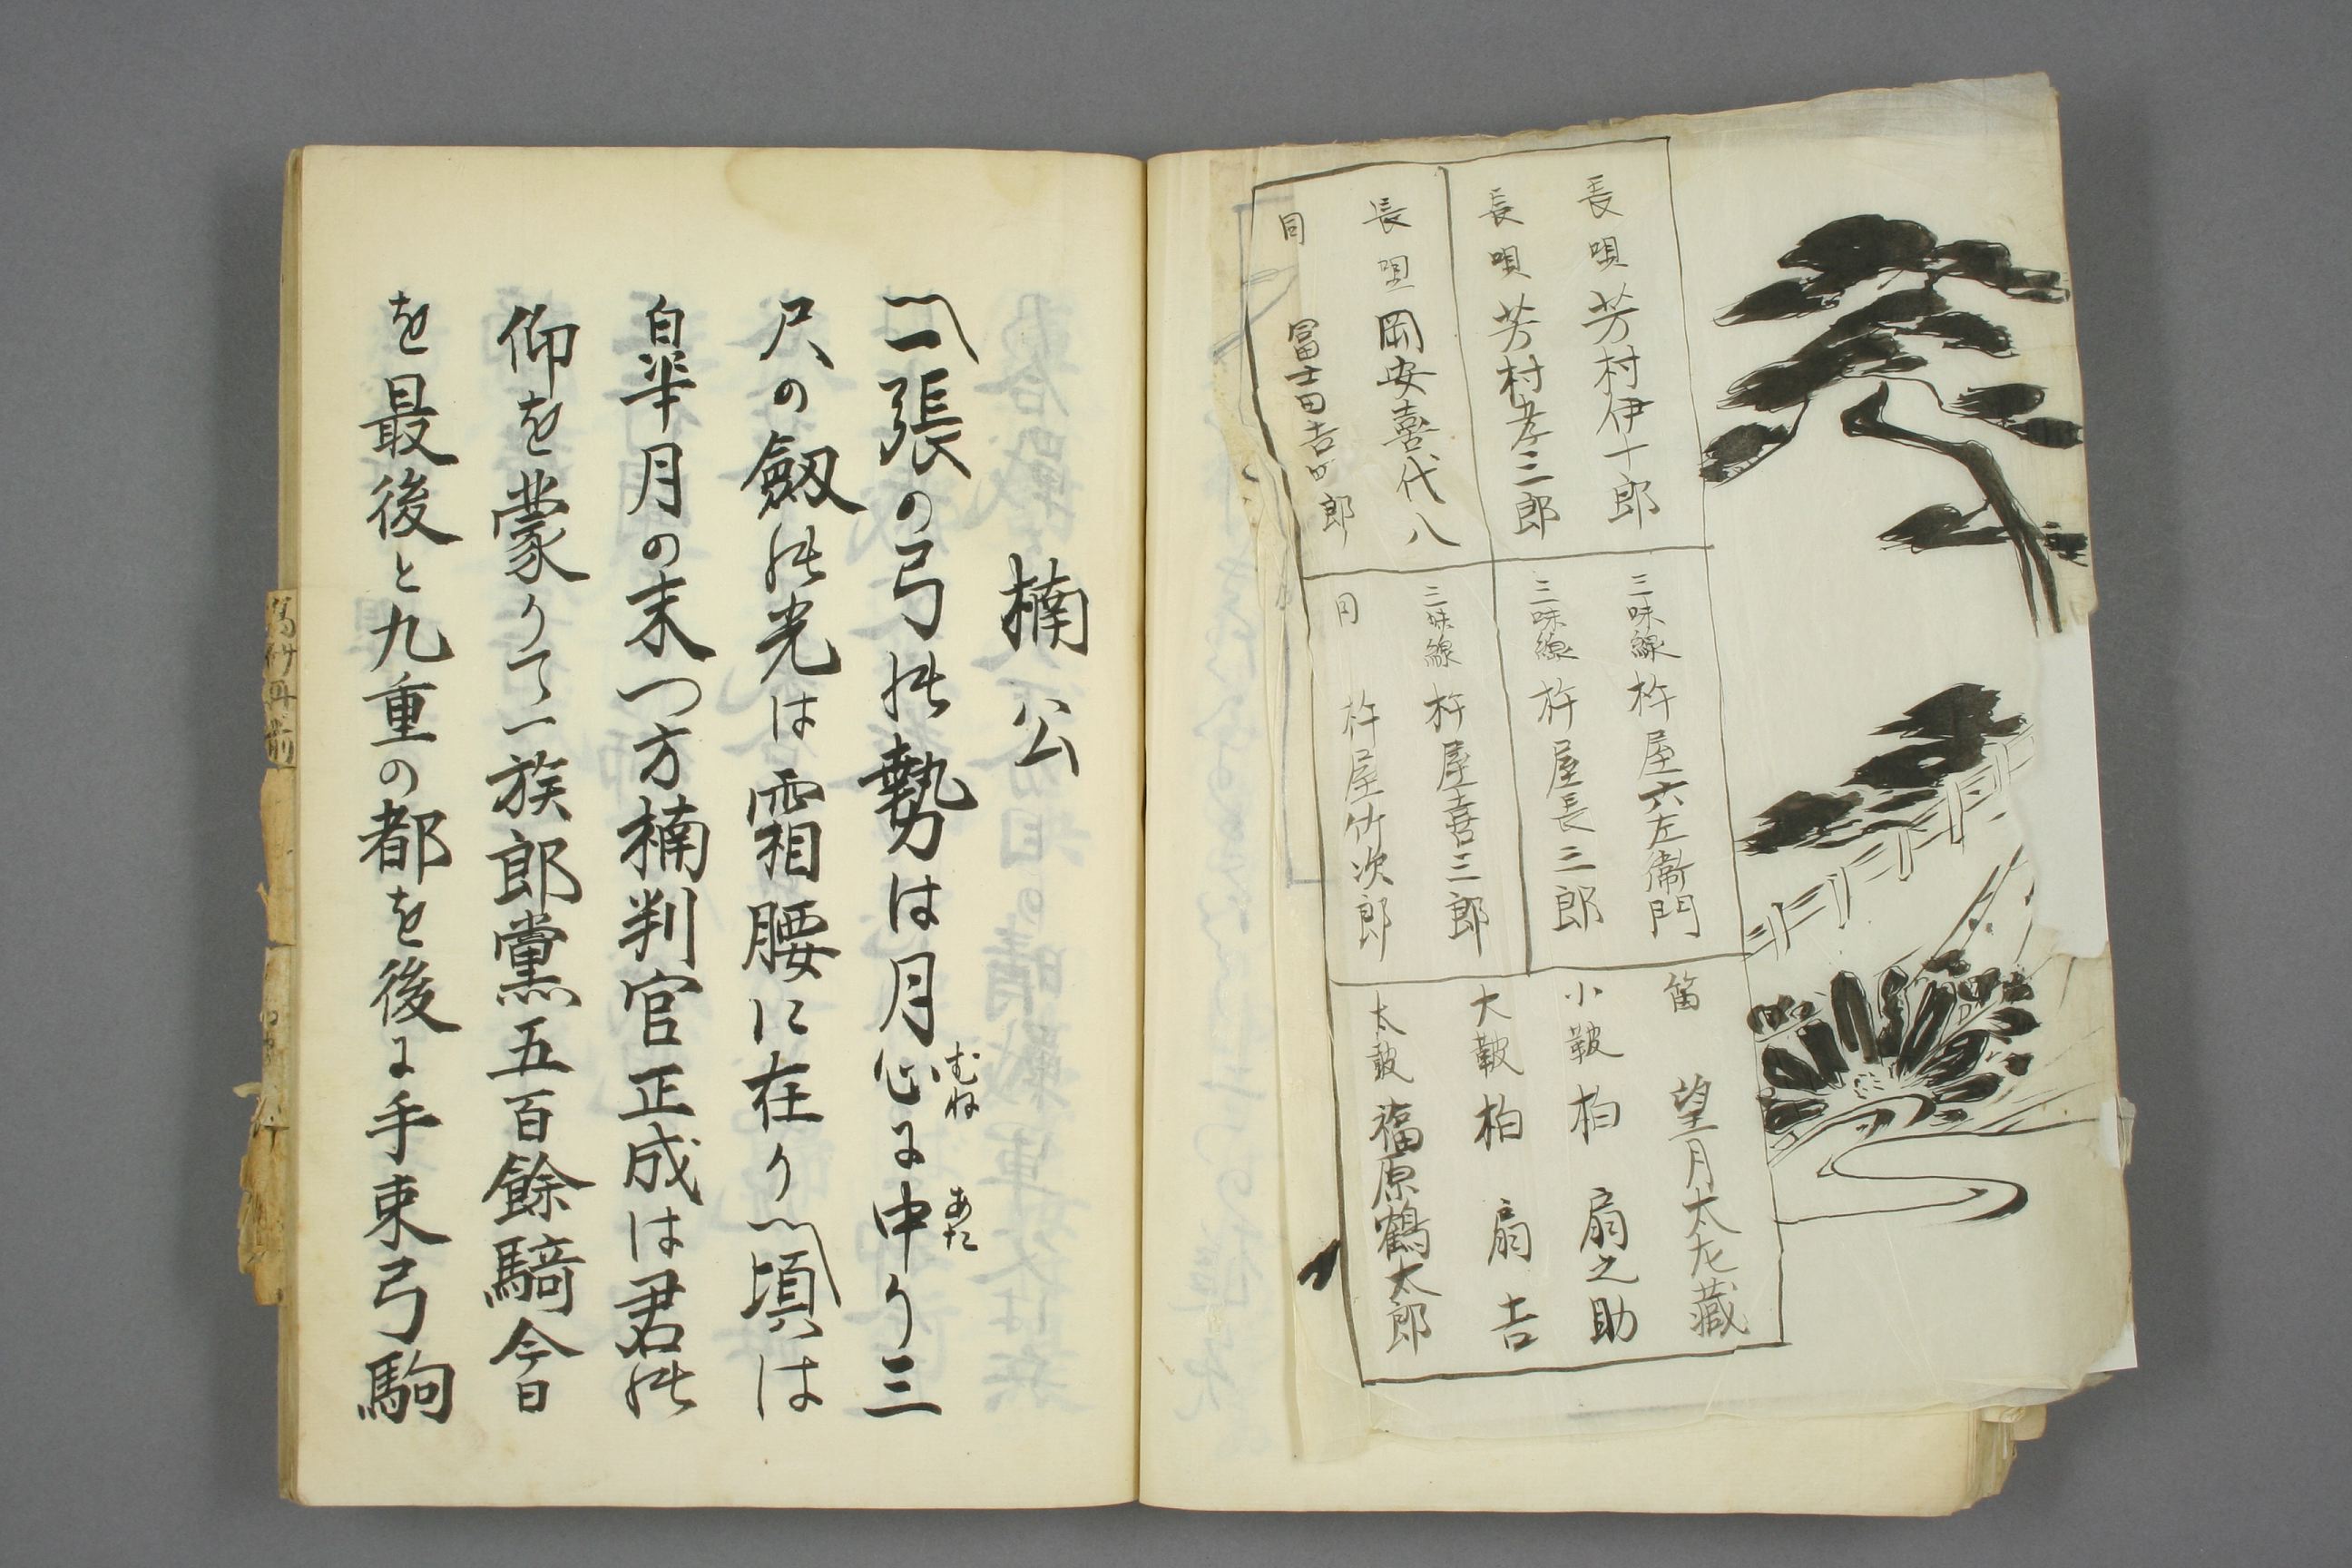 長唄 芳村伊十郎
長唄 芳村孝三郎
長唄 岡安喜代八
同 冨士田吉四郎
三味線 杵屋六左衞門
三味線 杵屋長三郎
三味線 杵屋喜三郎
同 杵屋竹次郎
笛 望月太左藏
小鞁 柏扇之助
大鞁 柏扇吉
太鼓 福原鶴太郎
楠公
一張の弓の勢は月心に中り三
むね
あた
尺の劔の光は霜腰に在り頃は
皐月の末つ方楠判官正成は君の
仰を蒙りて一族郎黨五百餘騎今日
を最後と九重の都を後に手束弓駒